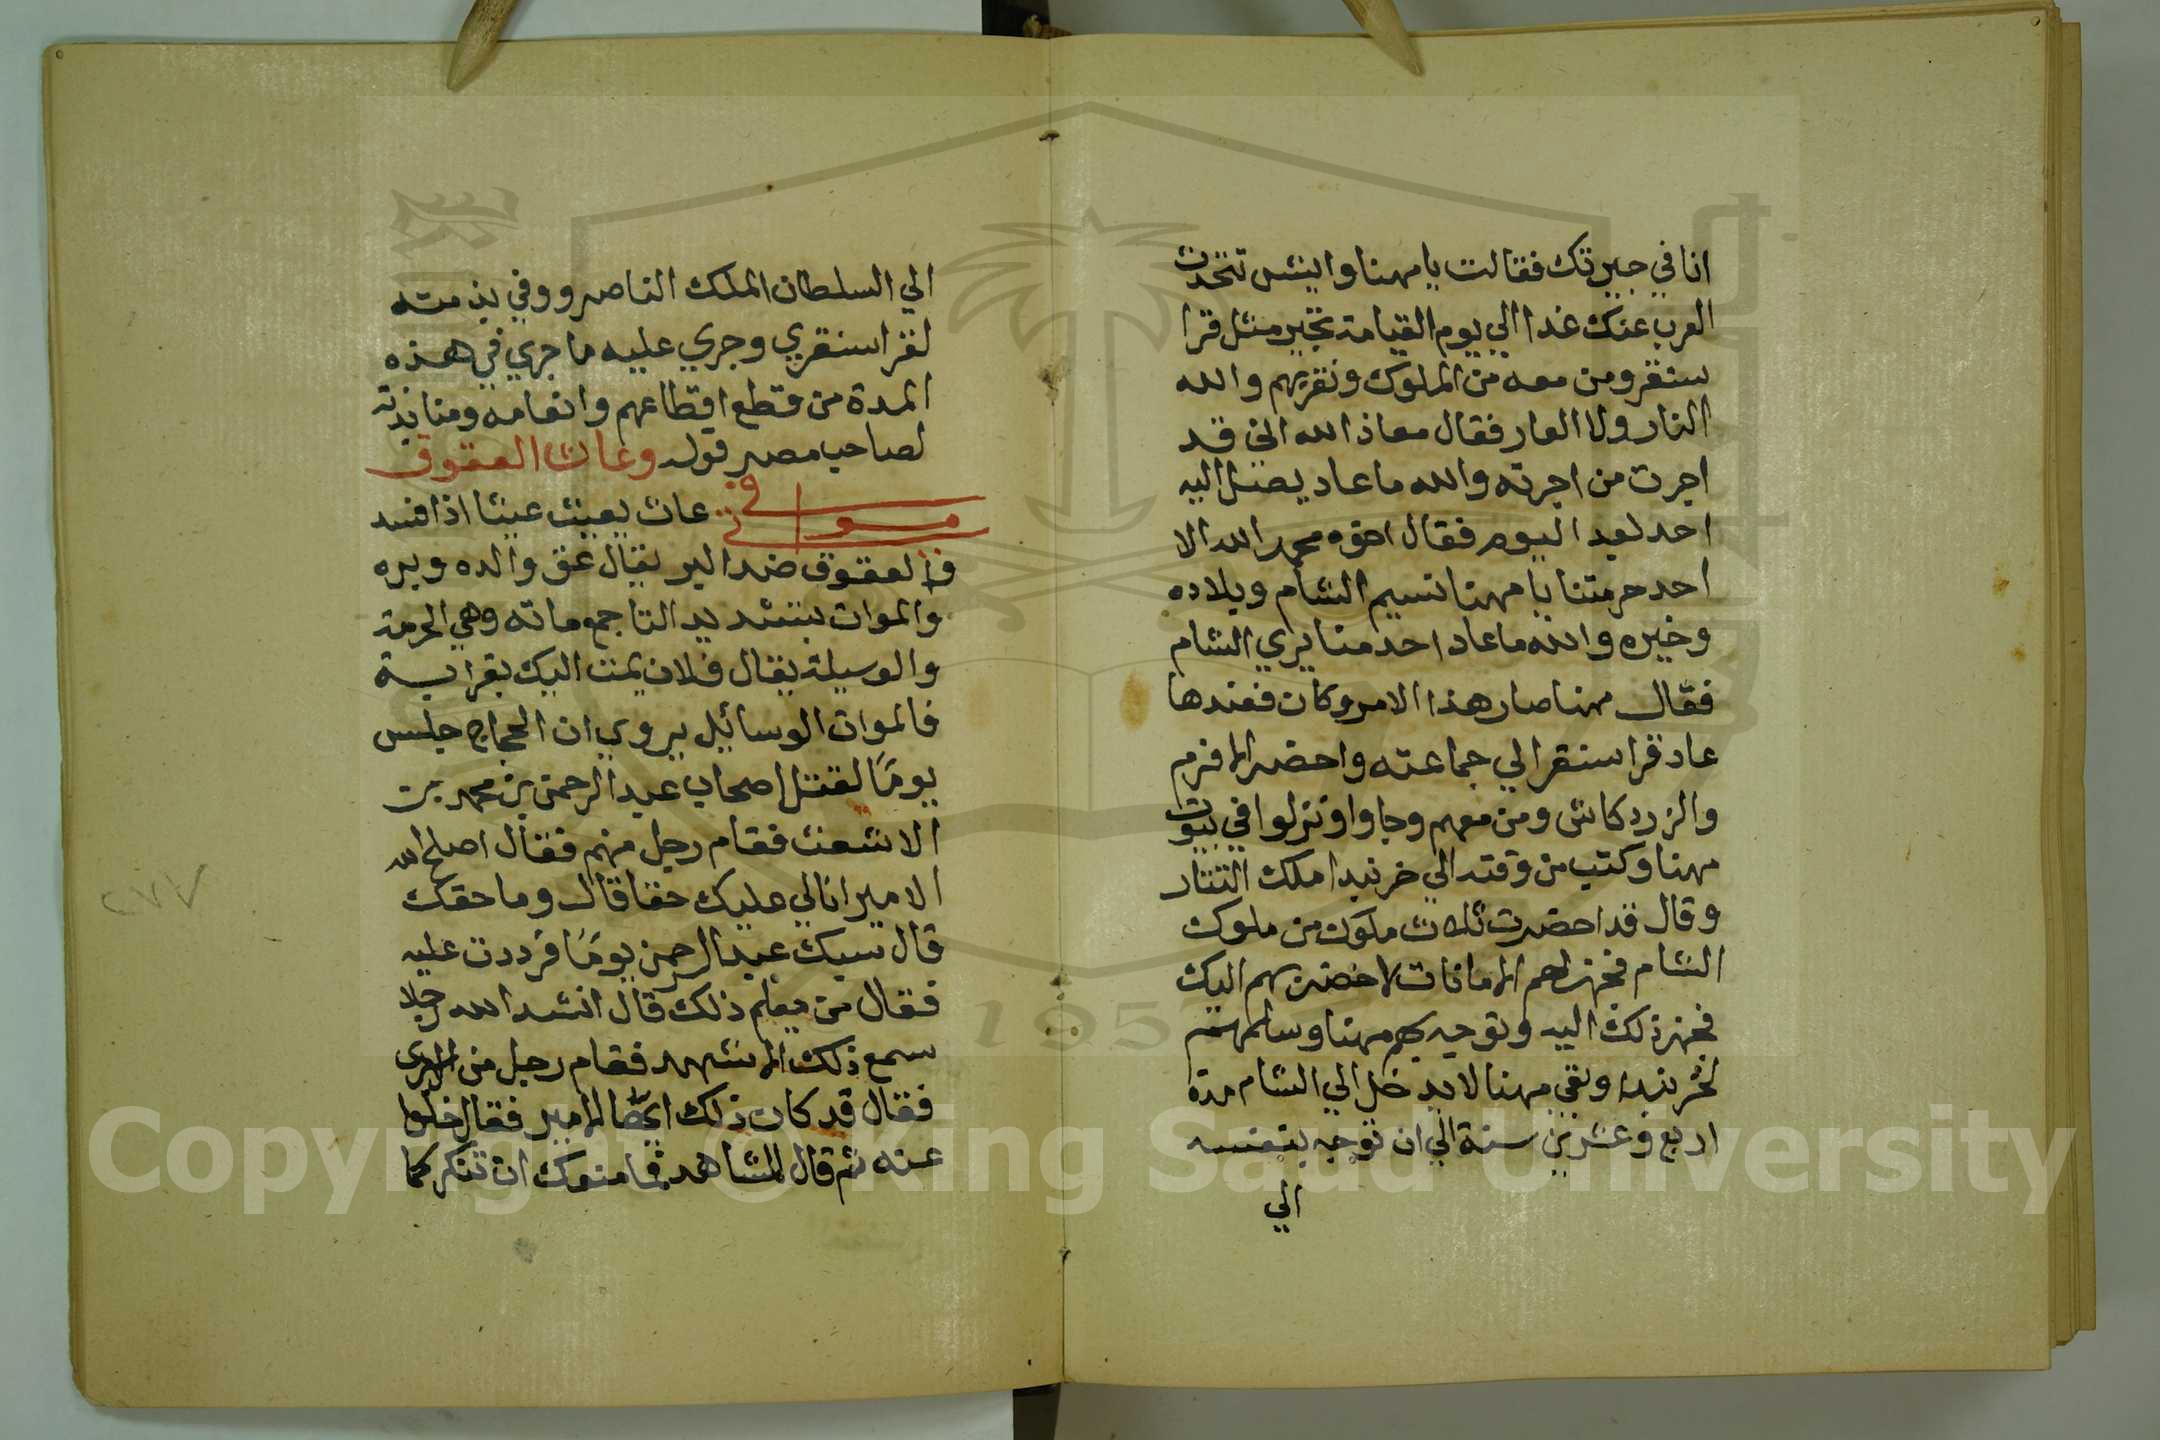 انا في جيرتك فقالت يا مهنا وايش تتحدث
العرب عنك غدا الي يوم القيامة تجير مثل قرا
سنقر ومن معه من الملوك وتقربهم والله
النار ولا العار فقال معاذ الله اني قد
اجرت من اجرته والله ما عاد يصل اليه
احد بعد اليوم فقال اخوه محمد الله الا
احد حرمتنا يا مهنا نسيم الشام وبلاده
وخيره والله ما عاد احد منا يري الشام
فقال مهنا صار هذا الامر وكان فعندها
عاد قرا سنقر الي جماعته واحضر الافرم
والزردكاش ومن معهم وجاوا ونزلوا في بيوت
مهنا وكتب من وقته الي خربندا ملك التتار
وقال قد احضرت ثلاث ملوك من ملوك
الشام فجهز لهم الامانات لاحضر بهم اليك
فجهز ذلك اليه وتوجه بهم مهنا وسلمهم
لخربندا وبقي مهنا لا يدخل الي الشام مدة
اربع وعشرين سنة الي ان توجه بنفسه
الي
الي السلطان الملك الناصر ووفي بذمته
لقرا سنقري وجري عليه ما جري في هذه
المدة من قطع اقطاعهم وانعامه ومنابذته
لصاحب مصر قوله وعاث العقوق
في مواتي عاث يعيث عيثا اذا افسد
والعقوق ضد البر يقال عق والده وبره
والموات بتشديد التا جمع ماته وهي الحرمة
والوسيلة يقال فلان يمت اليك بقرابة
فالموات الوسائل يروي ان الحجاج جلس
يومًا لقتل اصحاب عبد الرحمن بن محمد بن
الاشعث فقام رجل منهم فقال اصلح الله
الامير ان لي عليك حقا قال وما حقك
قال سبك عبد الرحمن يومًا فرددت عليه
فقال من يعلم ذلك قال انشد الله رجلا
سمع ذلك الا شهد فقام رجل من الاسري
فقال قد كان ذلك ايها الامير فقال خلوا
عنه ثم قال للشاهد فما منعك ان تنكر كما
٢٧٧
Copyright © King Saud University
1957